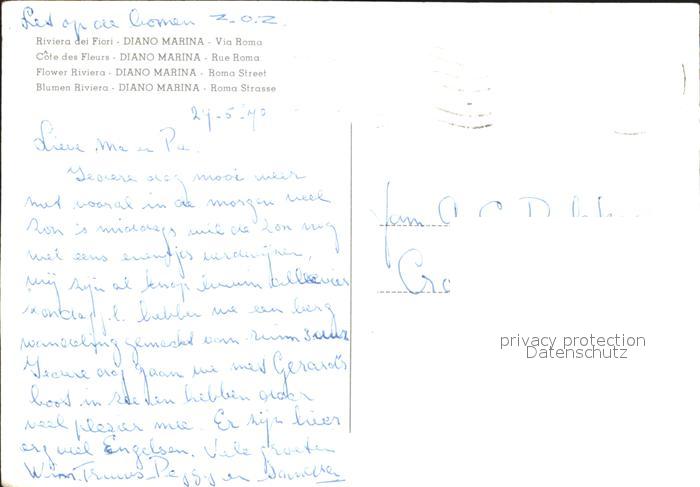 Let op de bomen Z.O.Z.
Riviera dei Fiori - DIANO MARINA - Via Roma
Côte des Fleurs - DIANO MARINA - Rue Roma
Flower Riviera - DIANO MARINA - Roma Street
Blumen Riviera - DIANO MARINA - Roma Strasse
27-5-'70
Lieve Ma en Pa.
Iedere dag mooi weer
met vooral in de morgen veel
zon 's middags wil de zon nog
wel eens eventjes verdwijnen,
wij zijn al knap bruin alle vier
zondag j.l. hebben we een berg
wandeling gemaakt van ruim 3 uur
Iedere dag gaan we met Gerard's
boot in zee en hebben daar
veel plezier mee. Er zijn hier
erg veel Engelsen. Vele groeten
Wim. Truus. Peggy en
Fam
privacy protection
Datenschutz